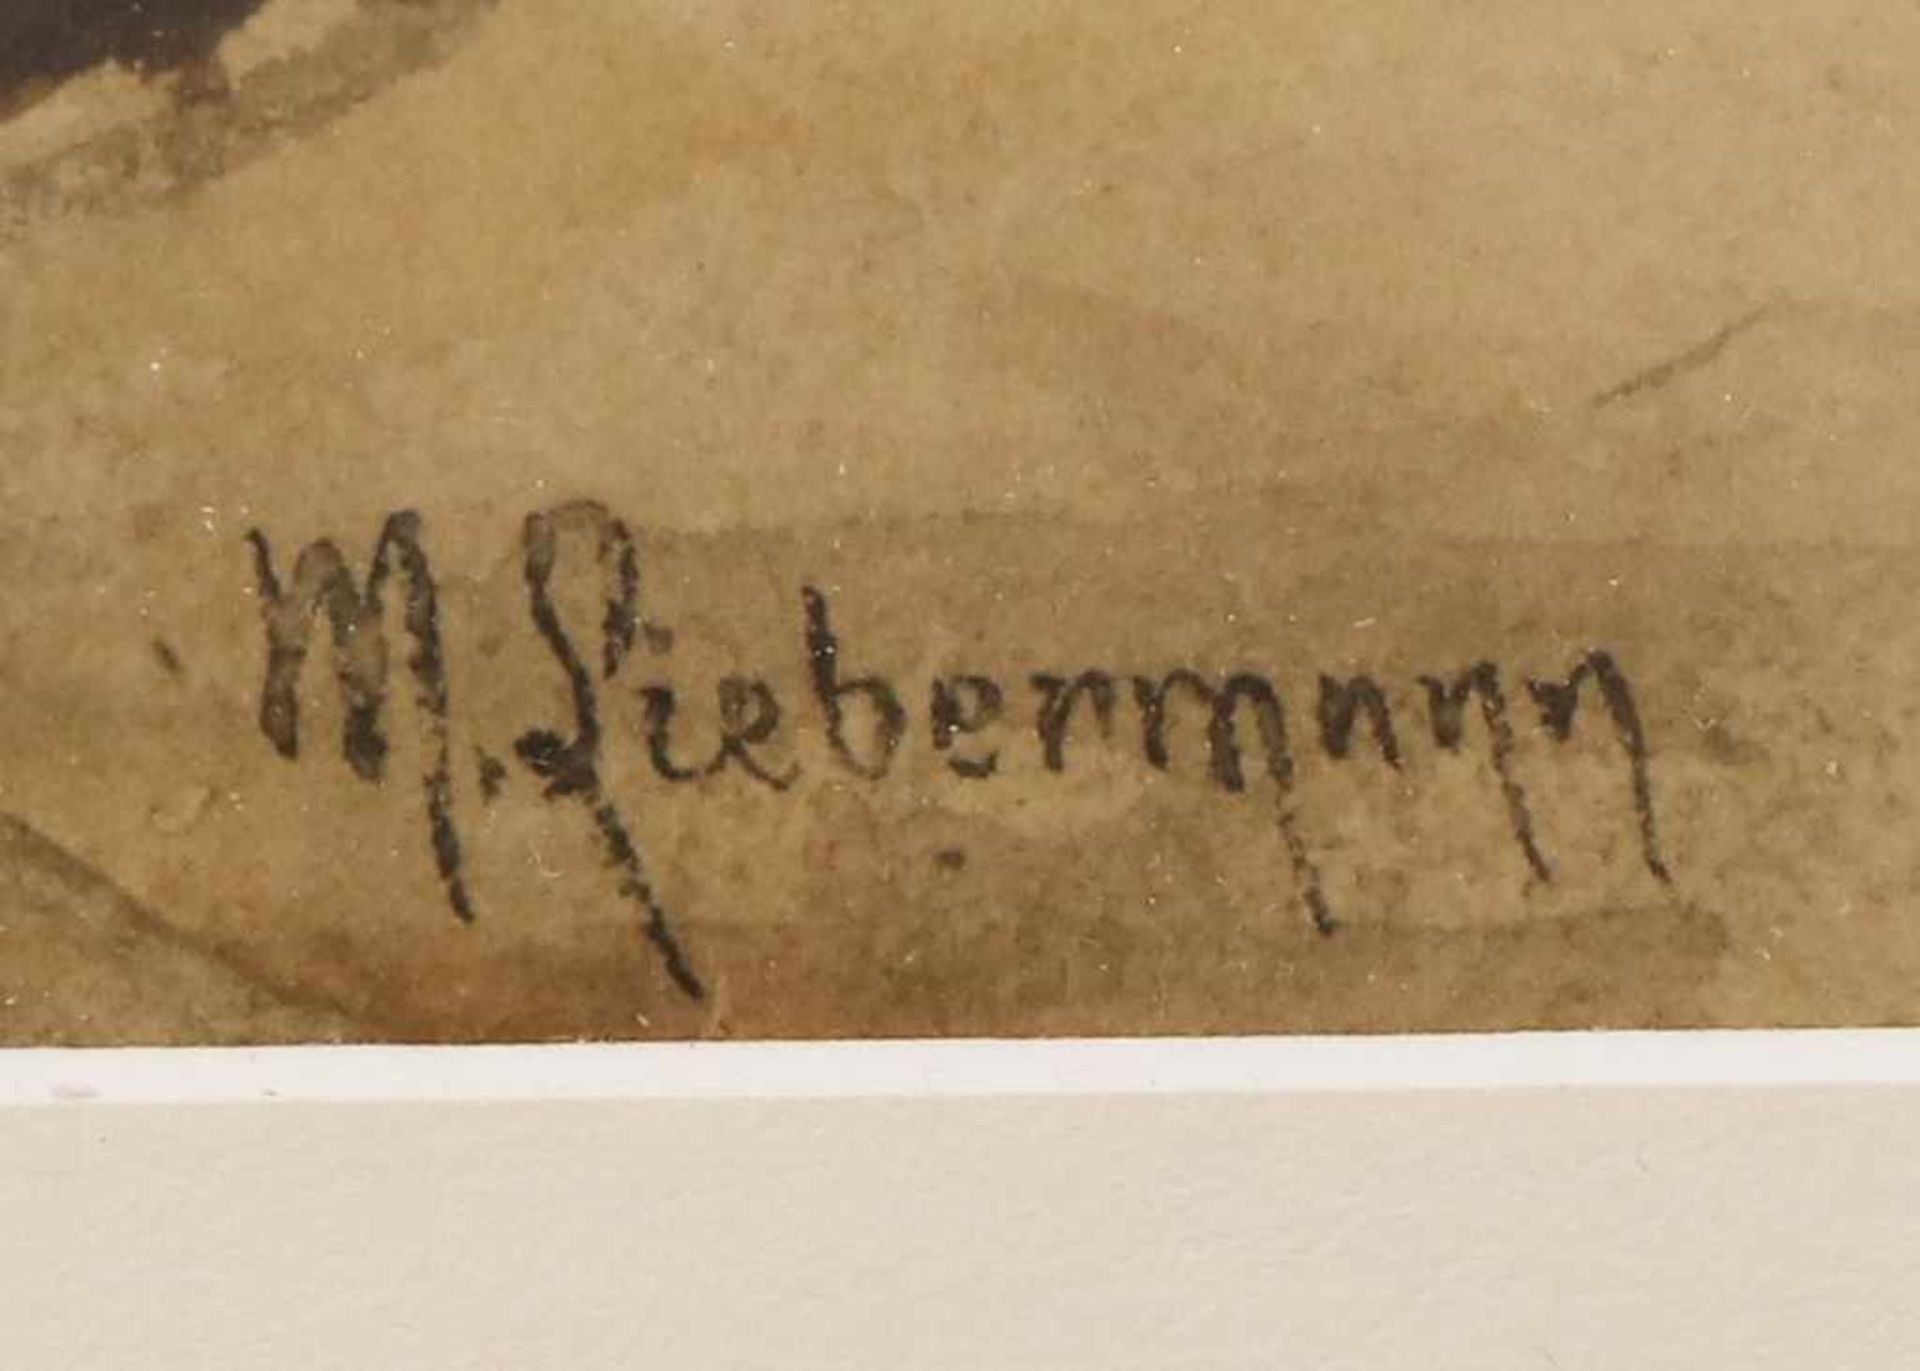 M. Liebermann